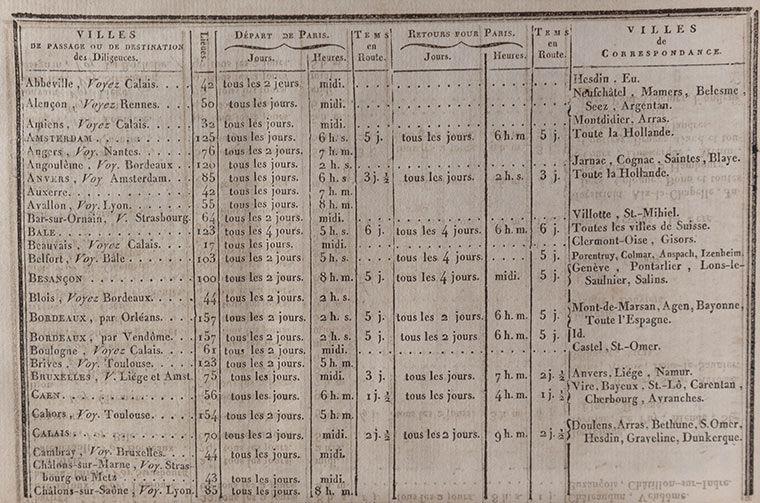 VILLES DE PASSAGE OU DE DESTINATION des Diligences. | Lieues. | DÉPART DE PARIS. Jours. Heures. | TEMS en Route. | RETOURS POUR PARIS. Jours. Heures. | TEMS en Route. | VILLES de CORRESPONDANCE.
Abbeville, Voyez Calais. . . . 42 tous les 2 jours. midi. Hesdin, Eu.
Alençon, Voyez Rennes. . . . 50 tous les jours. midi. Neufchâtel, Mamers, Belesme, Seez, Argentan.
Amiens, Voyez Calais. . . . 32 tous les jours. midi. Montdidier, Arras.
AMSTERDAM . . . . 125 tous les jours. 6 h. s. 5 j. tous les jours. 6 h. m. 5 j. Toute la Hollande.
Angers, Voy. Nantes. . . . 76 tous les 2 jours. 7 h. m.
Angoulême, Voy. Bordeaux . . 120 tous les jours. 2 h. s. Jarnac, Cognac, Saintes, Blaye.
ANVERS, Voy. Amsterdam. . . 85 tous les jours. 6 h. s 3 j. ½ tous les jours. 2 h. s. 3 j. Toute la Hollande.
Auxerre. . . . 42 tous les jours. 7 h. m.
Avallon, Voy. Lyon. . . . 55 tous les jours. 8 h. m.
Bar-sur-Ornain, V. Strasbourg. 64 tous les 2 jours. midi. Villotte, St.-Mihiel.
BALE . . . . 123 tous les 4 jours. 5 h. s. 6 j. tous les 4 jours. 6 h. m. 6 j. Toutes les villes de Suisse.
Beauvais, Voyez Calais. . . 17 tous les jours. midi. Clermont-Oise, Gisors.
Belfort, Voy. Bâle . . . . 103 tous les 2 jours. 5 h. s. tous les 4 jours. 5 j. Porentruy, Colmar, Anspach, Izenheim.
BESANÇON . . . . 100 tous les 2 jours. 8 h. m. 5 j. tous les 4 jours. midi. 5 j. Genève, Pontarlier, Lons-le-Saulnier, Salins.
Blois, Voyez Bordeaux. . . . 44 tous les 2 jours. 2 h. s.
BORDEAUX, par Orléans. . . 157 tous les 2 jours. 2 h. s. 5 j. tous les 2 jours. 6 h. m. 5 j. Mont-de-Marsan, Agen, Bayonne, Toute l'Espagne.
BORDEAUX, par Vendôme. . . 157 tous les 2 jours. 2 h. s. 5 j. tous les 2 jours. 6 h. m. 5 j. Id.
Boulogne, Voyez Calais. . . 61 tous les 2 jours. midi. Castel, St.-Omer.
Brives, Voy. Toulouse. . . . 123 tous les 2 jours. 5 h. m.
BRUXELLES, V. Liége et Amst. 75 tous les jours. midi. 3 j. tous les jours. 7 h. m. 2 j. ½ Anvers, Liége, Namur.
CAEN. . . . 56 tous les jours. 6 h. m. 1 j. ½ tous les jours. 4 h. m. 1 j. ½ Vire, Bayeux, St.-Lô, Carentan, Cherbourg, Avranches.
Cahors, Voy. Toulouse. . . . 154 tous les 2 jours. 5 h. m.
CALAIS. . . . 70 tous les 2 jours. midi. 2 j. ½ tous les 2 jours. 9 h. m. 2 j. ½ Doulens, Arras, Bethune, S. Omer, Hesdin, Graveline, Dunkerque.
Cambray, Voy. Bruxelles. . . 44 tous les jours. midi.
Châlons-sur-Marne, Voy. Strasbourg ou Metz . . . . 43 tous les jours. midi.
Châlons-sur-Saône, Voy. Lyon. 85 tous les jours. 8 h. m.